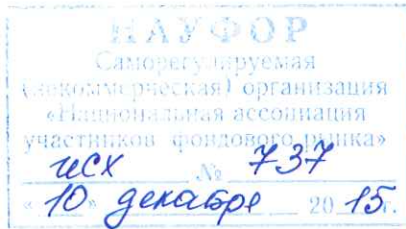 НАУФОР
Саморегулируемая
(некоммерческая) организация
«Национальная ассоциация
участников фондового рынка»
исх № 737
« 10 » декабря 20 15 г.